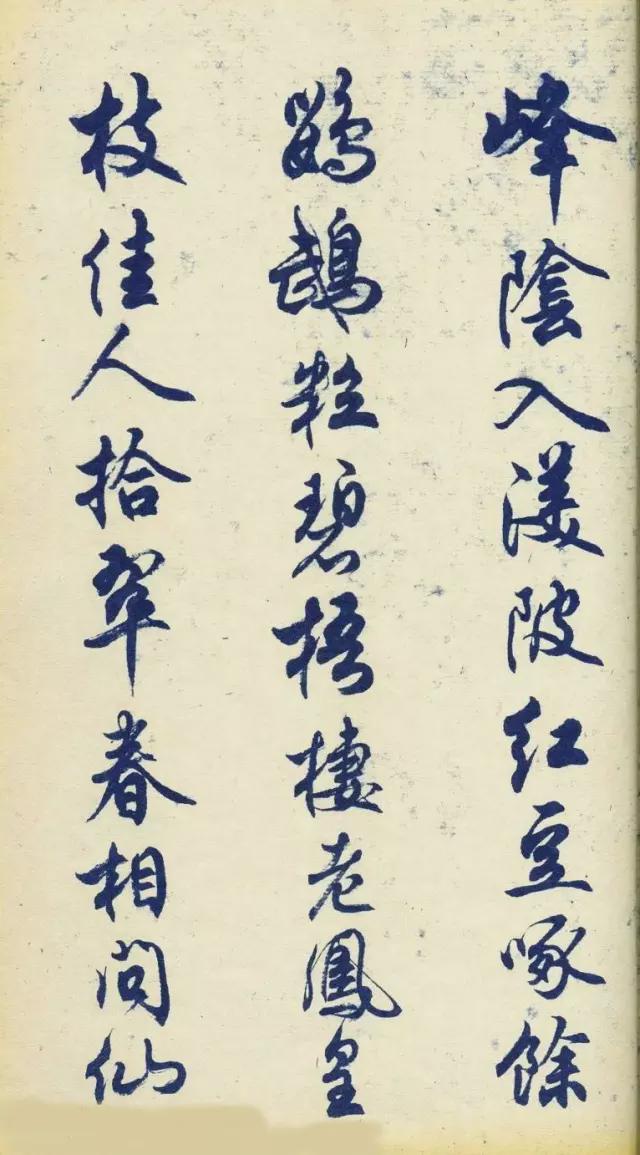 峰陰入渼陂紅豆啄餘
鸚鵡粒碧梧棲老鳳皇
枝佳人拾翠春相問仙